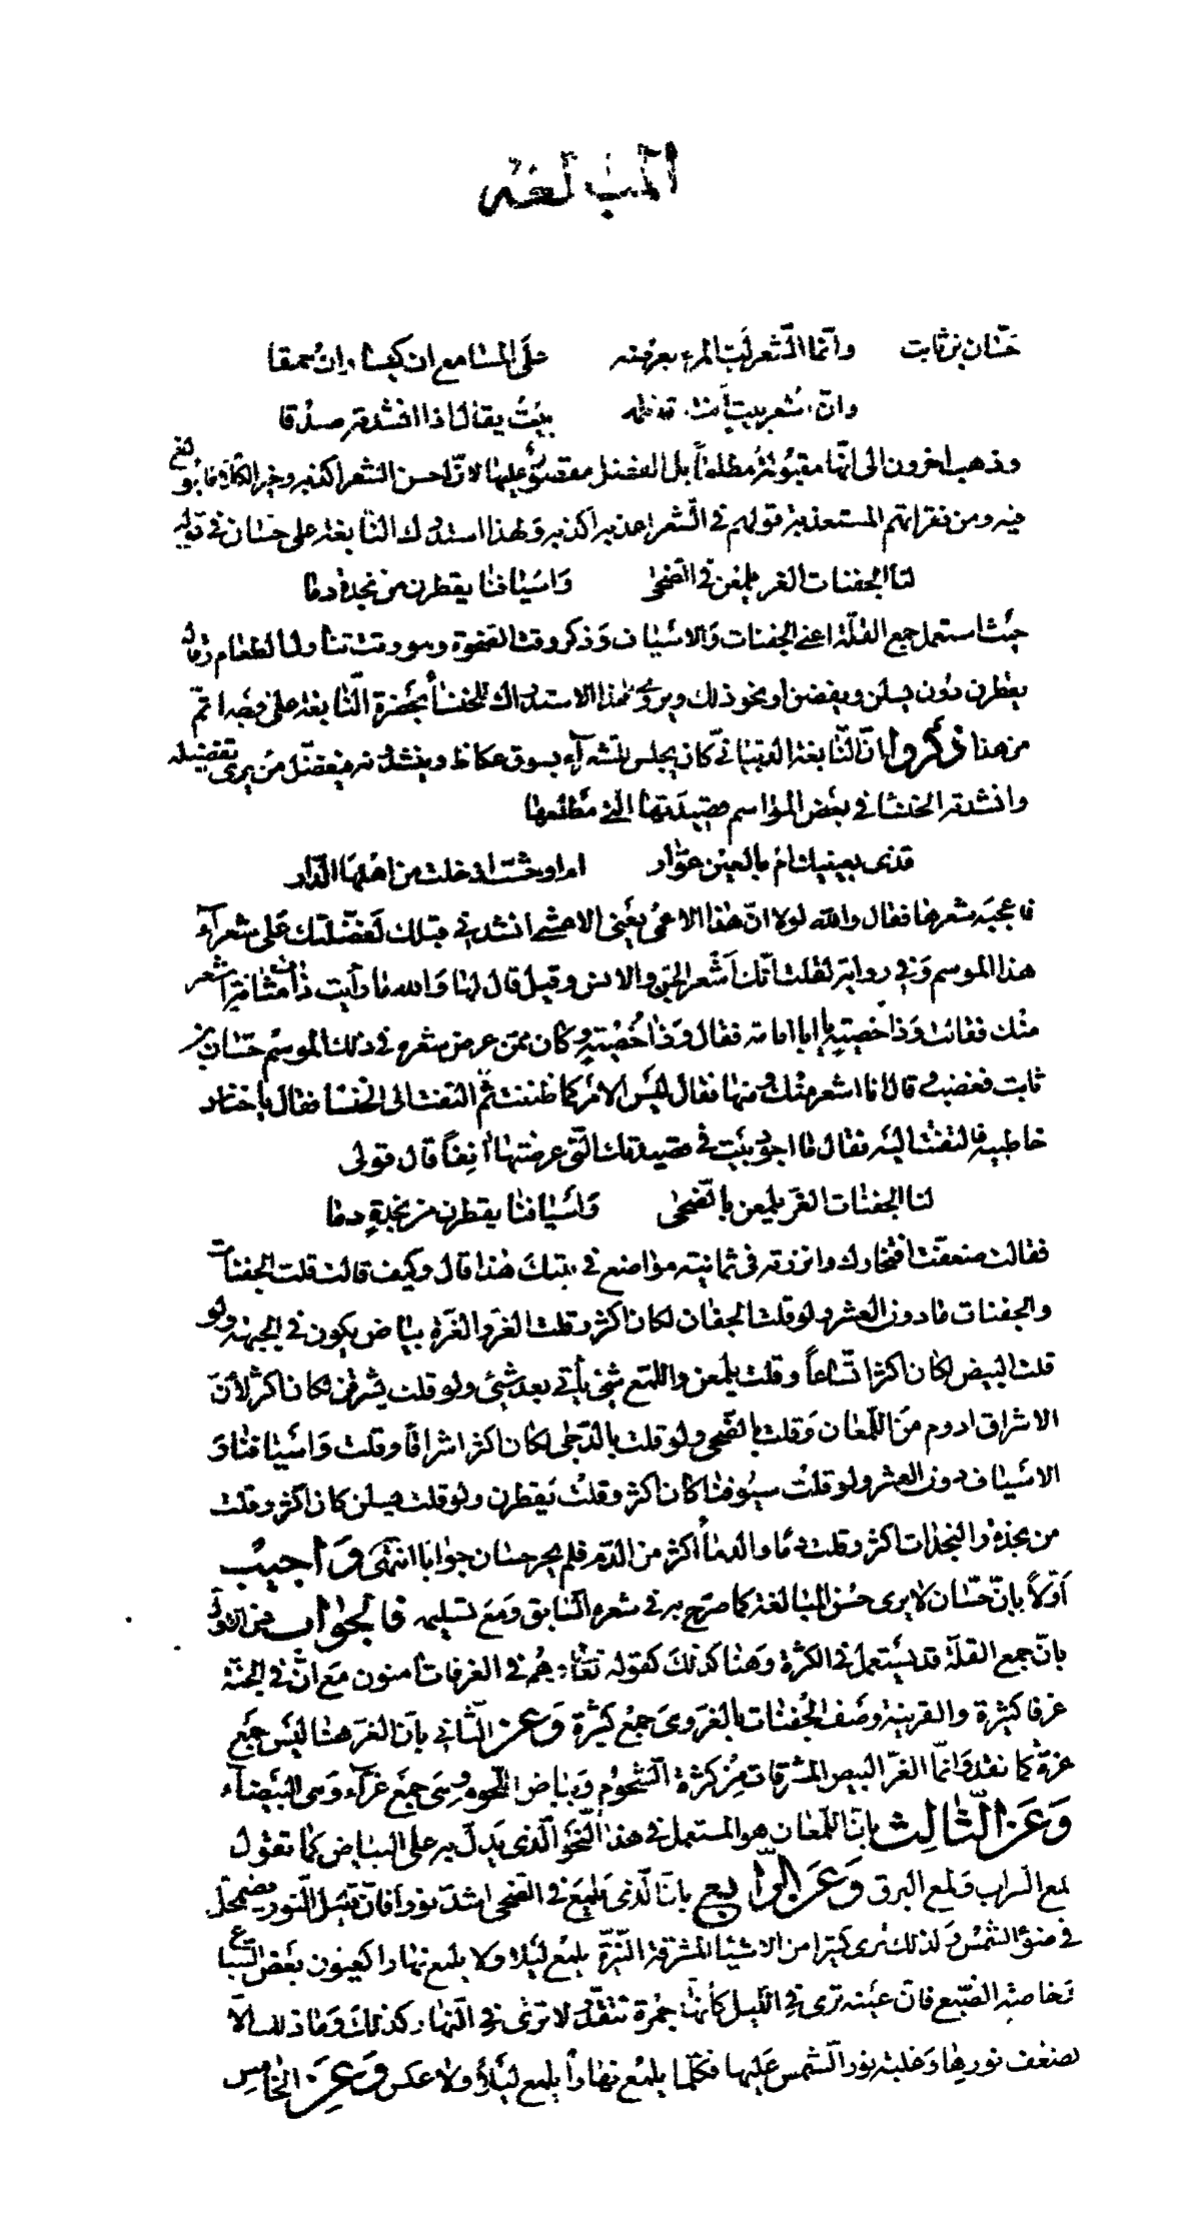 المبالغه
حسّان بن ثابت وانّما الشّعر لبّ المرء يعرضه على المسامع ان كيسا وان حمقا
وانّ شعر بيت أنت قائله بيتٌ يقال اذا انشدته صدقا
وذهب اخرون الى انّها مقبولة مطلقاً بل الفضل مقصورٌ عليها لانّ احسن الشعر اكذبه وخير الكلام ما بولغ
فيه ومن فقراتهم المستعذبة قولهم في الشّعر اعذبه اكذبه ولهذا استدرك النابغة على حسّان في قوله
لنا الجفنات الغر يلمعن في الضّحى وَاسيافنا يقطرن من نجدة دما
حيث استعمل جمع القلّة اعنى الجفنات وَالاسياف وَذكر وقت الضحوة وهو وقت تناول الطعام وقال
يقطرن دون يسلن ويفضن او نحو ذلك ويروى هذا الاستدراك للخنسآ بحضرة النّابغة على وجه اتمّ
من هذا ذكروا انّ النّابغة الذبيانيّ كان يجلس للشعرآء بسوق عكاظ وينشدونه فيفضّل من يرى تفضيله
وانشدته الخنسا في بعض المواسم قصيدتها الّتى مطلعها
قذى بعينيك ام بالعين عوّار ام اوحشت اذ خلت من اهلها الدّار
فاعجبه شعرها فقال والله لولا انّ هذا الاعمى يعني الاعشى انشدني قبلك لَفضّلتك عَلى شعرآء
هذا الموسم وَفي رواية لقلت انّك اَشعر الجن والانس وقيل قال لها وَالله ما رأيت ذات مثانة اشعر
منك فقالت وَذا خصيتين يا ابا امامة فقال وَذا خصيتين وكان ممن عرض شعره في ذلك الموسم حسّان بن
ثابت فغضب وقال انا اشعر منك ومنها فقال ليس الامر كما ظننت ثمّ التفت الى الخنسا فقال يا خناس
خاطبيه فالتفتت اليه فقال ما اجود بيت في قصيدتك الّتي عرضتها انفاً قال قولى
لنا الجفنات الغرّ يلمعن بالضّحى وَاَسيافنا يقطرن من نجدةٍ دما
فقالت ضعفت افتخارك وانزرته في ثمانية مواضع في بيتك هذا قال وكيف قالت قلت الجفنات
والجفنات مادون العشر ولو قلت الجفان لكان اكثر وقلت الغر والغرّة بياض يكون في الجبهة ولو
قلت البيض لكان اكثر اتّساعاً وقلت يلمعن واللمع شئ يأتي بعد شئ ولو قلت يشرقن لكان اكثر لأنّ
الاشراق ادوم من اللّمعان وَقلت بالضّحى ولو قلت بالدّجى لكان اكثر اشراقاً وقلت وَاسيافنا وَ
الاسياف دون العشر ولو قلت سيوفنا كان اكثر وقلت يَقطرن ولو قلت يسلن كان اكثر وقلت
من نجدة والنجدات اكثر وقلت دمًا والدماء أكثر من الدّم فلم يحر حسان جوابا انتهى وَاجيب
اَوّلاً بانّ حسّان لا يرى حسن المبالغة كما صرّح به في شعره السّابق وَمع تسليمه فالجواب عن الاوّل
بانّ جمع القلّة قد يستعمل في الكثرة وَهنا كذلك كقوله تعالى وهم في الغرفات آمنون مع انّ في الجنّة
غرفا كثيرة والقرينة وصف الجفنات بالغر وهى جمع كثرة وَعن الثّاني بانّ الغرّ هنا ليس جمع
غرّة كما نقد وانّما الغرّ البيض المشرقات من كثرة الشّحوم وَبياض اللحوم وهى جمع غرّآء وَهى البيضآء
وَعَن الثّالث بانّ اللّمعان هو المستعمل في هذا النّحو الّذى يدلّ به على البياض كما تقول
لمع السّراب وَلمع البرق وَعَن الرّابع بانّ الّذى يلمع في الضّحى اشدّ نورا فانّ قليل النّور يضمحلّ
في ضوء الشّمس وَلذلك نرى كثيرا من الاشيا المشرقة النيّرة يلمع ليلا ولا يلمع نهارا كعيون بعض السّباع
وَخاصة الضّبع فانّ عينه ترى في اللّيل كأنّها جمرة تتقد لا ترى في النّهار كذلك وَماذلك الّا
لضعف نورها وَغلبة نور الشّمس عليها فكلّما يلمع نهاراً يلمع ليلاً ولا عكس وَعن الخامس